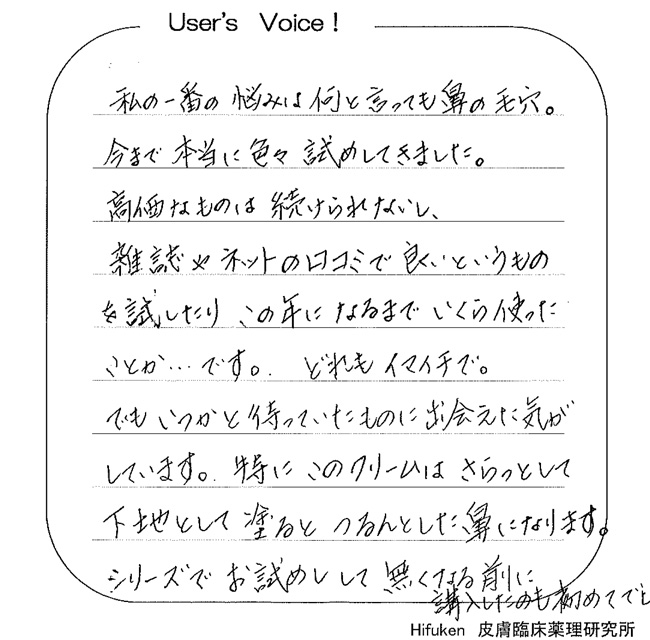 User's Voice！
私の一番の悩みは何と言っても鼻の毛穴。
今まで本当に色々試めしてきました。
高価なものは続けられないし、
雑誌やネットの口コミで良いというもの
を試したりこの年になるまでいくら使った
ことか…です。. どれもイマイチで。
でもいつかと待っていたものに出会えた気が
しています。特にこのクリームはさらっとして
下地として塗るとつるんとした鼻になります。
シリーズでお試めしして無くなる前に
購入したのも初めてでし
Hifuken 皮膚臨床薬理研究所